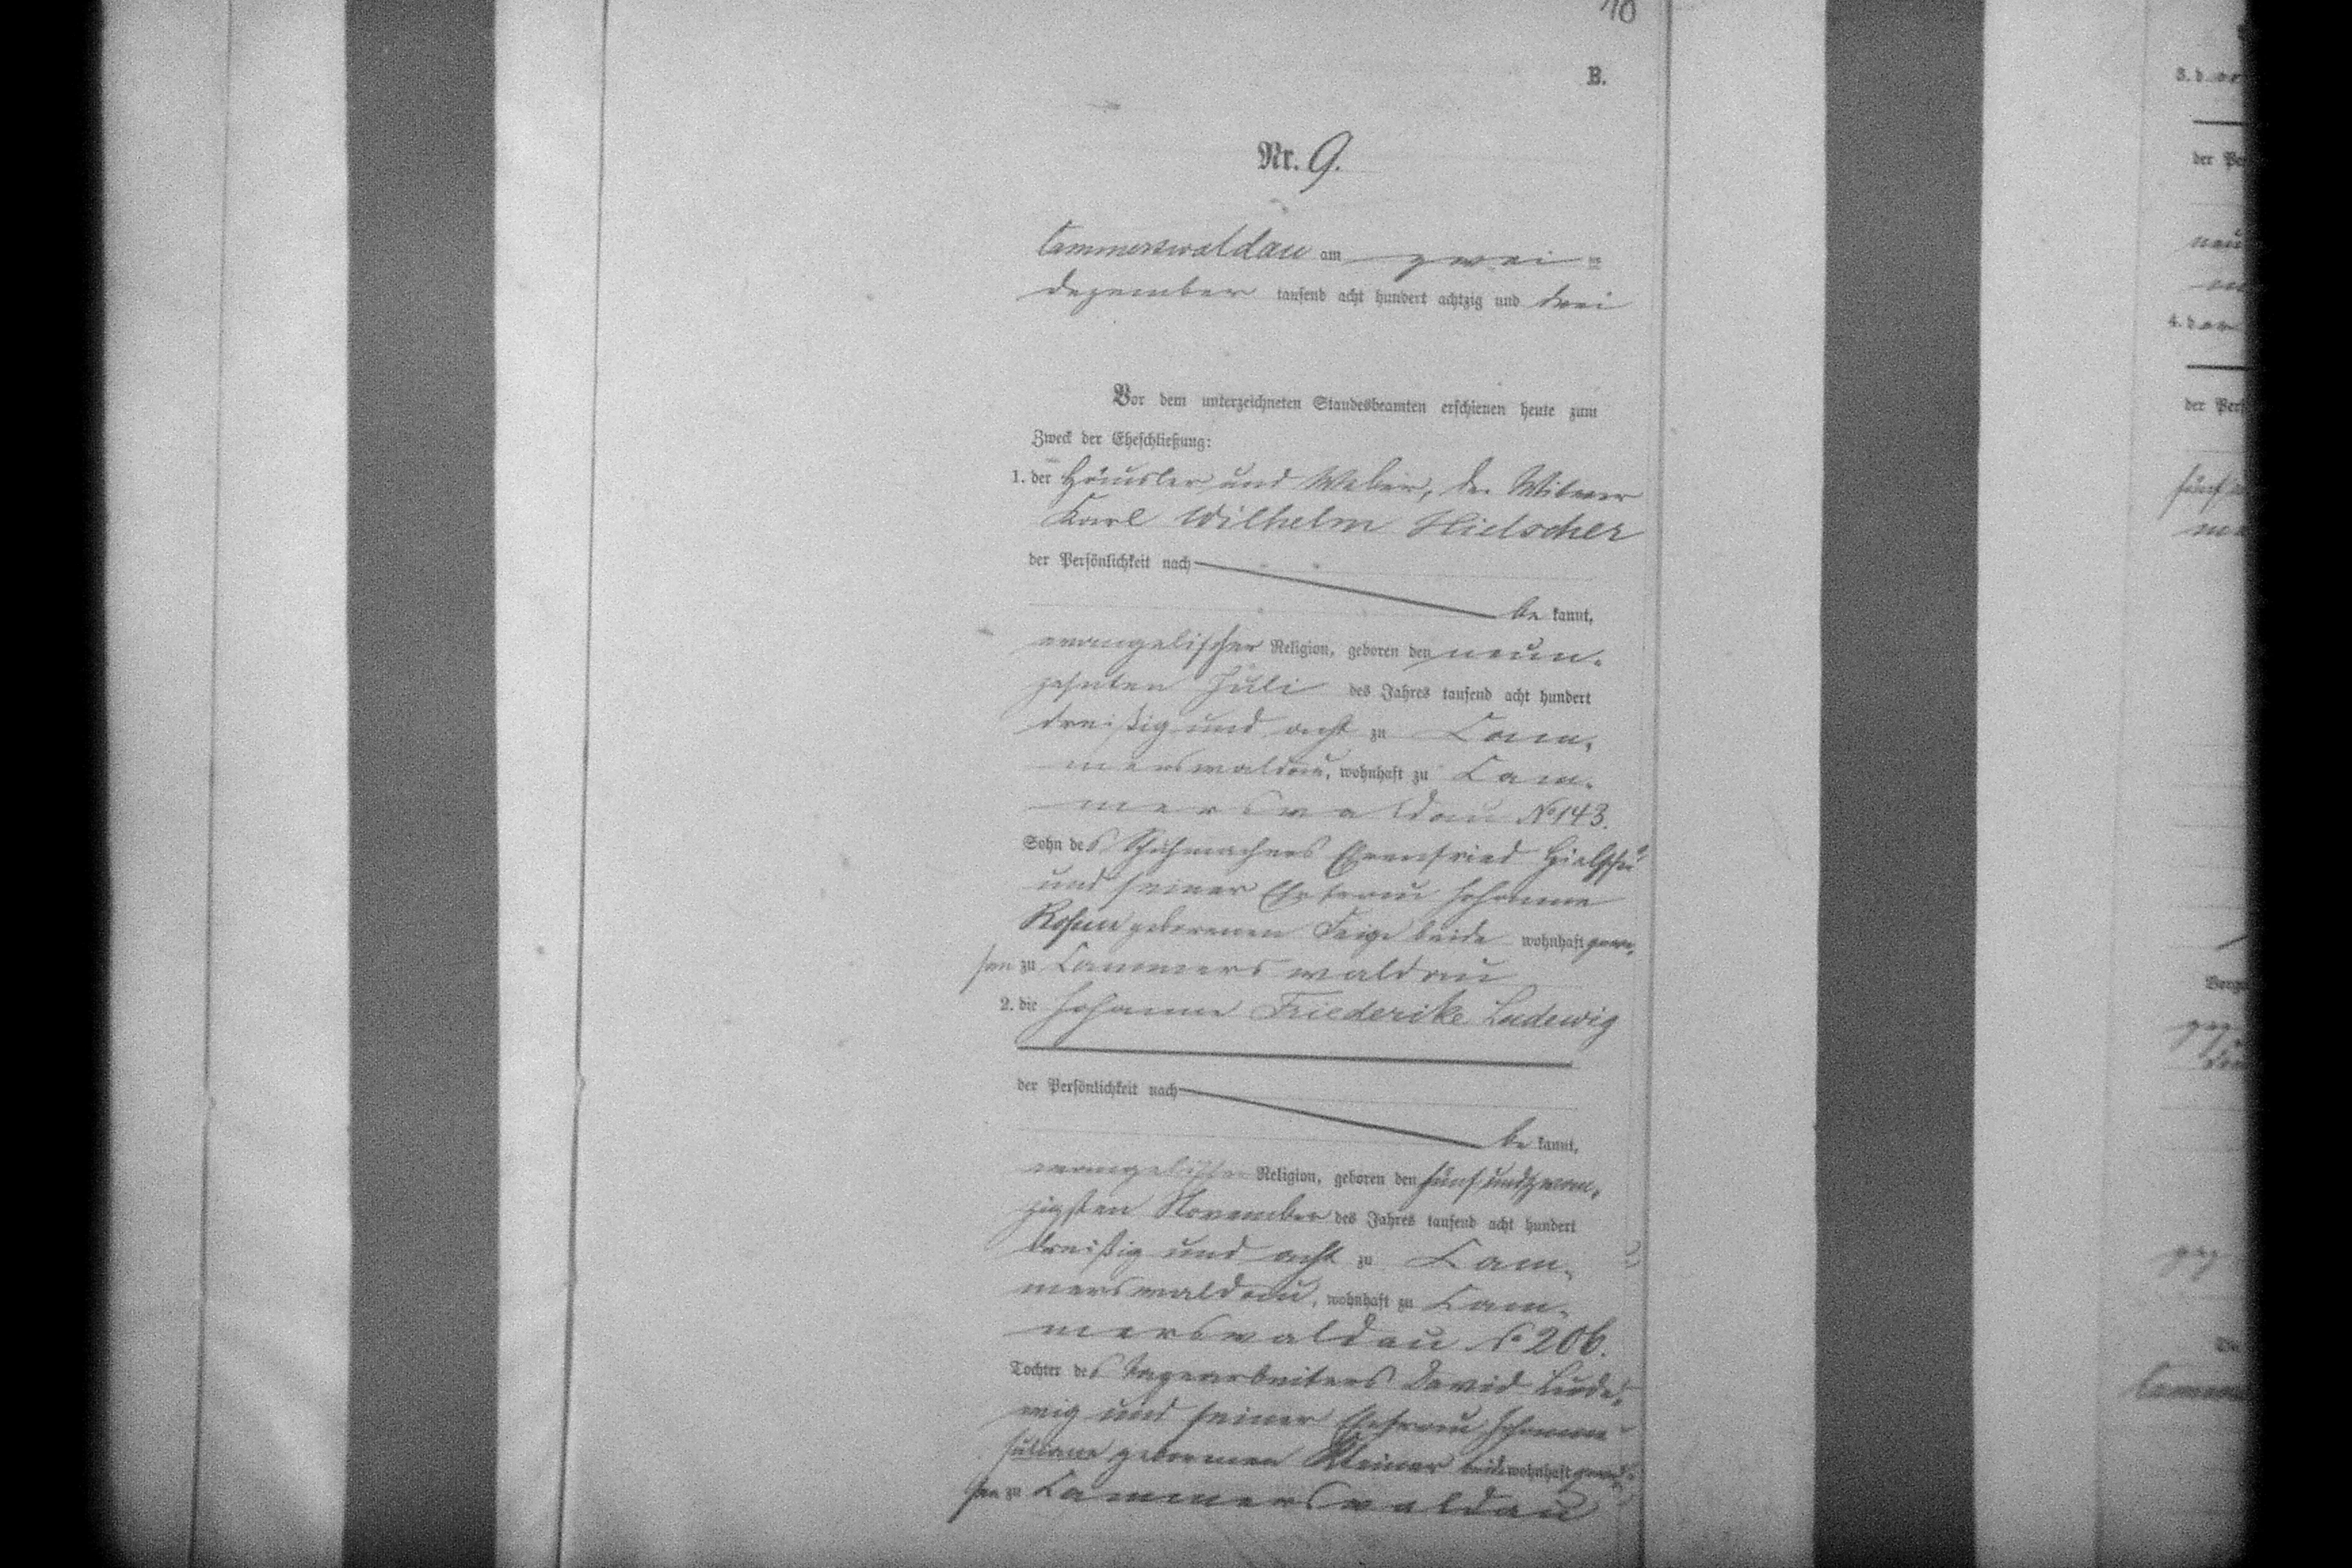 10
B.
Nr. 9.
Cammerswaldau am zwei=
Dezember tausend acht hundert achtzig und drei
Vor dem unterzeichneten Standesbeamten erschienen heute zum
Zweck der Eheschließung:
1. der Häusler und Weber, der Witwer
Karl Wilhelm Hielscher
der Persönlichkeit nach
be kannt,
evangelischer Religion, geboren den neun-
zehnten Juli des Jahres tausend acht hundert
dreißig und acht zu Cam-
merswaldau, wohnhaft zu Cam-
merswaldau No 143.
Sohn des Schuhmachers Ehrenfried Hielscher
und seiner Ehefrau Johanne
Rosine geborenen Feige beide wohnhaft gewe-
sen zu Cammerswaldau
2. die Johanne Friederike Ludewig
der Persönlichkeit nach
be kannt,
evangelischer Religion, geboren den fünfundzwan-
zigsten November des Jahres tausend acht hundert
dreißig und acht zu Cam-
merswaldau, wohnhaft zu Cam-
merswaldau No 206.
Tochter des Tagearbeiters David Lude-
wig und seiner Ehefrau Johanne
Juliane geborenen Kleiner beide wohnhaft gewe-
sen zu Cammerswaldau
3. d
der Pe
neu
4. d
der Per
fünf